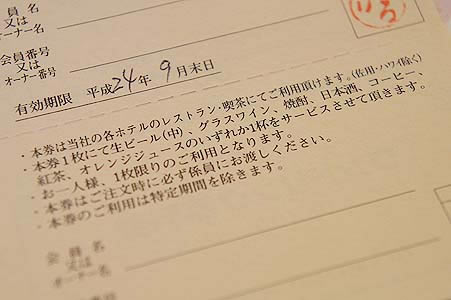 会員名
又は
オーナー名
会員番号
又は
オーナー番号
有効期限 平成24年 9月末日
・本券は当社の各ホテルのレストラン・喫茶にてご利用頂けます。(佐用・ハワイ除く)
・本券1枚にて生ビール(中)、グラスワイン、焼酎、日本酒、コーヒー、
紅茶、オレンジジュースのいずれか1杯をサービスさせて頂きます。
・お一人様、1枚限りのご利用となります。
・本券はご注文時に必ず係員にお渡しください。
・本券のご利用は特定期間を除きます。
会員名
又は
オーナー名
会員番号